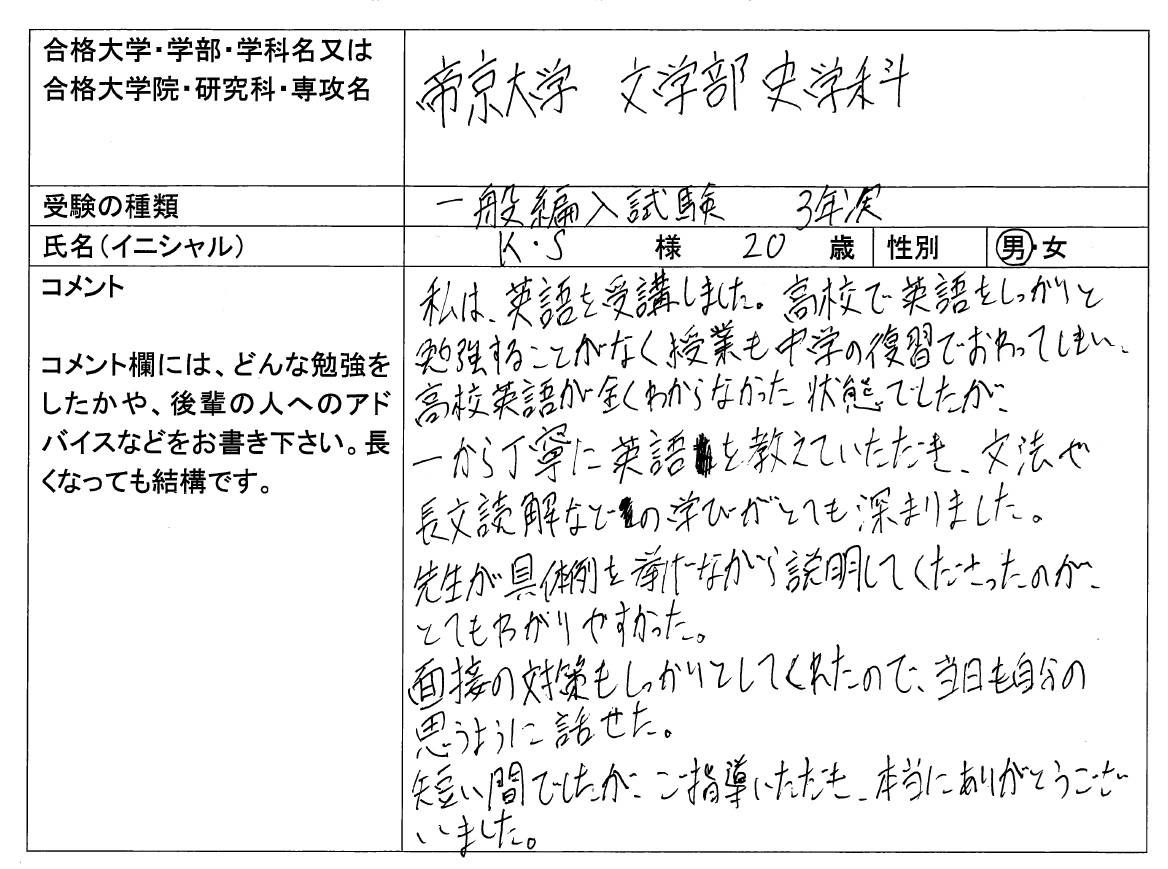 合格大学・学部・学科名又は
合格大学院・研究科・専攻名
帝京大学 文学部 史学科
受験の種類
一般編入試験 3年次
氏名(イニシャル)
K・S 様 20 歳 性別 男・女
コメント
コメント欄には、どんな勉強を
したかや、後輩の人へのアド
バイスなどをお書き下さい。長
くなっても結構です。
私は、英語を受講しました。高校で英語をしっかりと
勉強することがなく授業も中学の復習でおわってしまい、
高校英語が全くわからなかった状態でしたが、
一から丁寧に英語を教えていただき、文法や
長文読解などの学びがとても深まりました。
先生が具体例を挙げながら説明してくださったのが、
とてもわかりやすかった。
面接の対策もしっかりとしてくれたので、当日も自分の
思うように話せた。
短い間でしたが、ご指導いただき、本当にありがとうござ
いました。